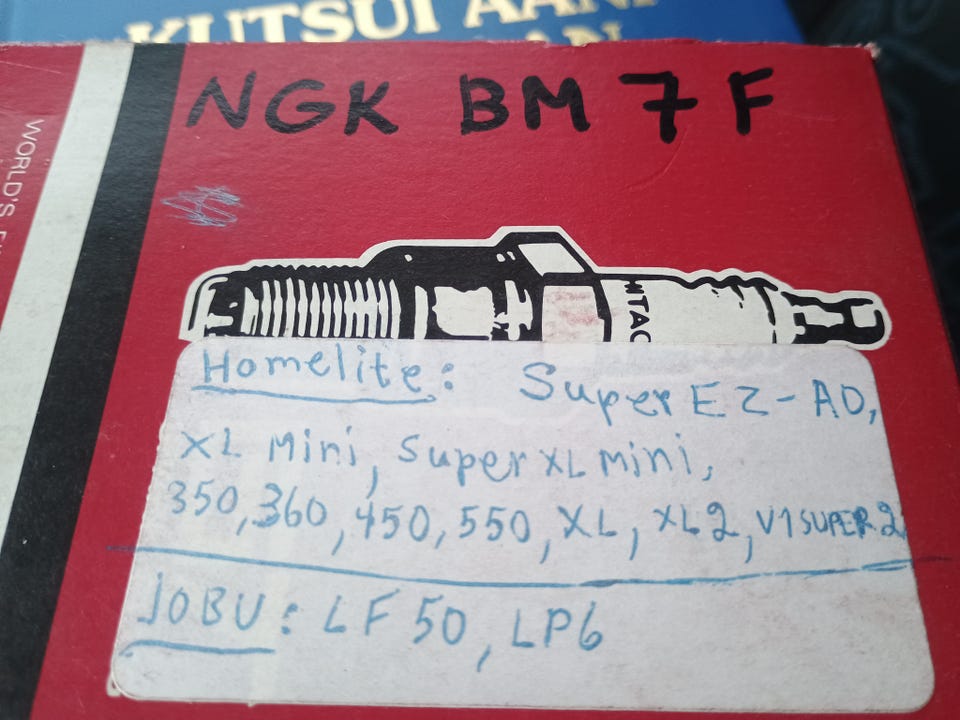 KUTSUI
NGK BM 7 F
WORLD'S
HITAC
Homelite: Super EZ-AO,
XL Mini, Super XL Mini,
350, 360, 450, 550, XL, XL2, V1 SUPER 2
JOBU: LF 50, LP6